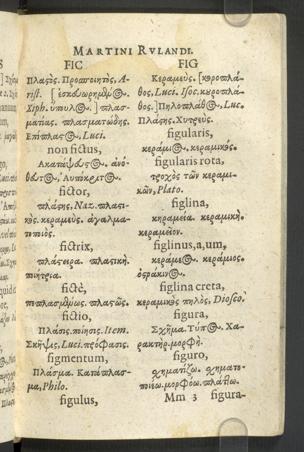 MARTINI RVLANDI.
FIC
Πλαστὸς. Προσποιητὸς, A-
rist.
Xiph.
ματίας. πλασματώδης.
Ἐπίπλαστος, Luci.
non fictus,
fictor,
πλάστης, Naz. πλαστι-
κὸς. κεραμεὺς. ἀγαλμα-
τοποιός.
fictrix,
πλάστειρα. πλαστική.
ποιήτρια.
fictè,
πεπλασμένως. πλαστῶς.
fictio,
Πλάσις. ποίησις. Item.
Σκῆψις, Luci. πρόφασις.
figmentum,
Πλάσμα. Κατάπλασ-
μα, Philo.
figulus,
FIG
Κεραμεὺς. [κοροπλά-
θος, Luci. Isoc. κηροπλά-
θος.] Πηλοπλάθος, Luc.
Πλάστης. Χυτρεύς.
figularis,
κεράμιος. κεραμικός.
figularis rota,
τροχὸς τῶν κεραμέ-
κῶν, Plato.
figlina,
κεραμεία. κεραμική.
κεραμεῖον.
figlinus, a, um,
κεράμιος. κεράμειος.
ὀστράκινος.
figlina creta,
κεραμικὸς πηλὸς, Diosco.
figura,
Σχῆμα. Τύπος. Χα-
ρακτήρ. μορφή.
figuro,
σχηματίζω. σχηματο-
ποιέω. μορφόω. πλάττω.
Mm 3 figura-